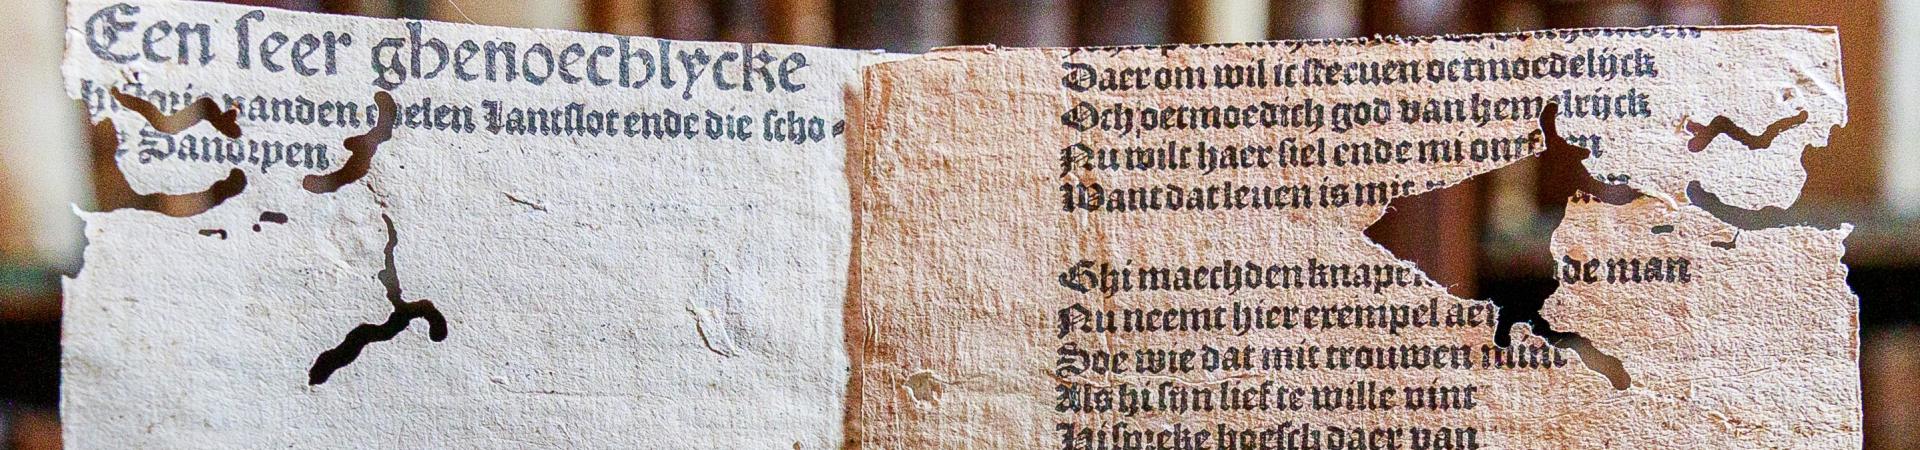 Een seer ghenoechlycke
historie vanden edelen Lantslot ende die scho⸗
Sandrpen
Daerom wil ic steruen oetmoedelijck
Och oetmoedich god van hemelrijck
Nu wilt haer siel ende mi ontfaen
Want dat leuen is mit
Ghi maechden knapen de man
Nu neemt hier exempel aen
Soe wie dat mit trouwen mint
Als hi sijn lief te wille vint
Hi spreke hoesch daer van